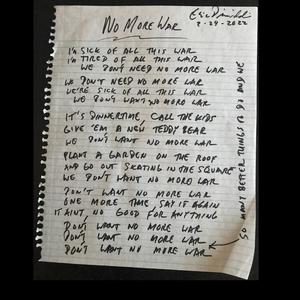 No More War
2-24-2022
I'm sick of all this war
I'm tired of all this war
We don't need no more war
We don't need no more war
We're sick of all this war
We don't want no more war
It's dinnertime, call the kids
Give 'em a new teddy bear
We don't want no more war
Plant a garden on the roof
And go out skating in the square
We don't want no more war
Don't want no more war
One more time, say it again
It ain't no good for anything
Don't want no more war
Don't want no more war
Don't want no more war
So many better things to do and we